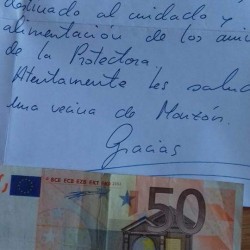 destinado al cuidado y
alimentación de los
de la Protectora.
Atentamente les
una vecina de Monzón.
Gracias
BCE ECB
50